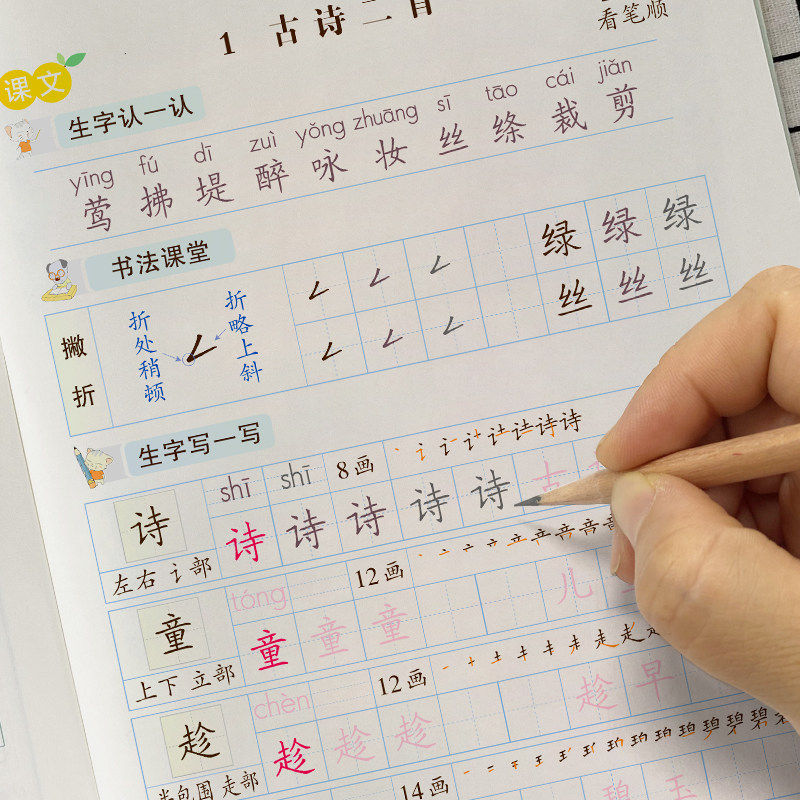 1 古诗二首
看笔顺
课文
生字认一认
yīng fú dī zuì yǒng zhuāng sī tāo cái jiǎn
莺 拂 堤 醉 咏 妆 丝 绦 裁 剪
书法课堂
撇折
折处稍顿
折略上斜
绿 绿 绿
丝 丝 丝
生字写一写
shī shī 8画
诗 诗 诗 诗 诗 诗 古
左右 讠部
tóng 12画
童 童 童 童 儿
上下 立部
chèn 12画
趁 趁 趁 趁 趁 早
半包围 走部
14画
碧 玉